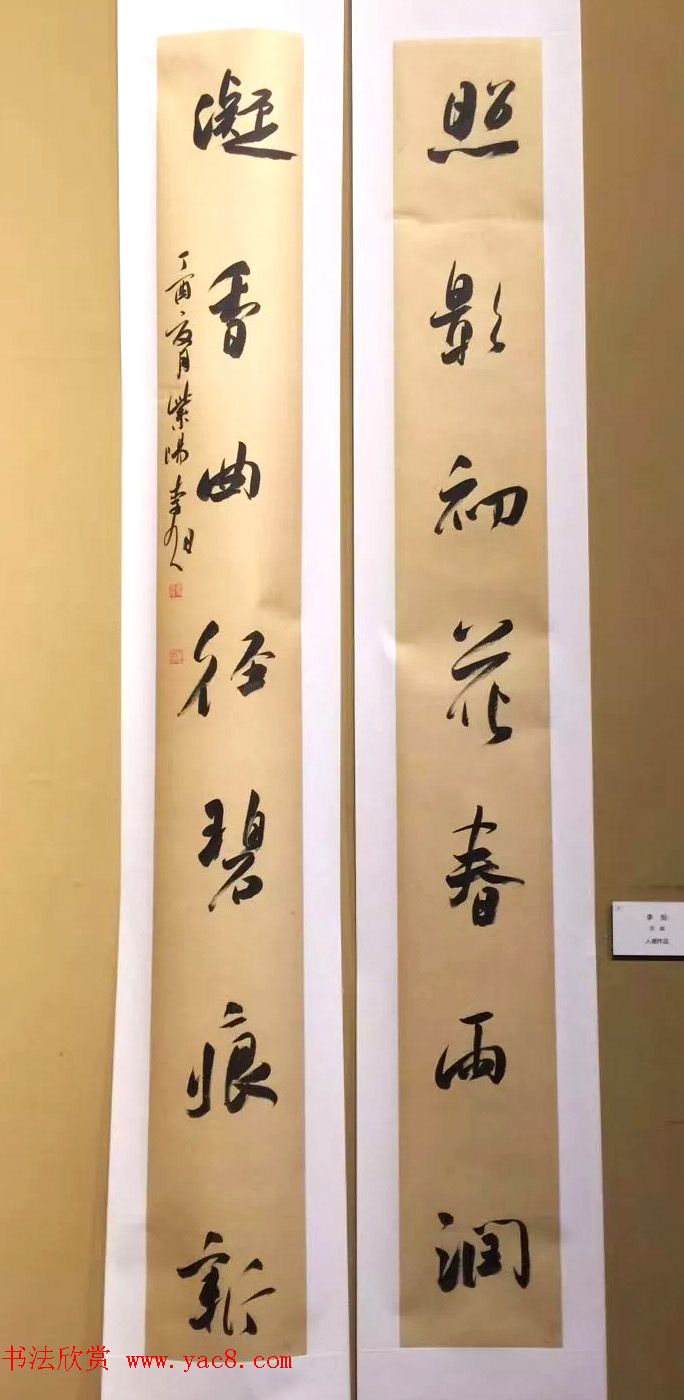 照影初花春雨润
凝香曲径碧痕新
丁酉夏月紫阳李
入展作品
书法欣赏 www.yac8.com